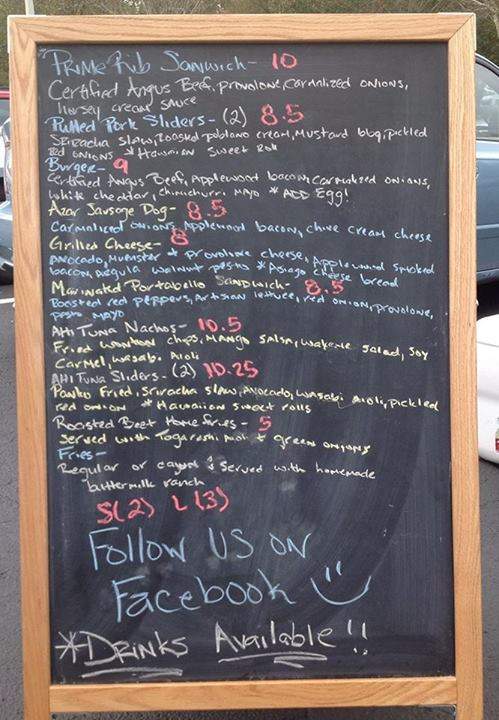 Prime Rib Sandwich- 10
Certified Angus Beef, provolone, carmalized onions,
horsey cream sauce
Pulled Pork Sliders- (2) 8.5
Sriracha slaw, roasted poblano cream, Mustard bbq, pickled
red onions * Hawaiian Sweet Roll
Burger- 9
Certified Angus Beef, Applewood bacon, carmalized onions,
white cheddar, chimichurri mayo * ADD Egg!
Azar Sausage Dog- 8.5
Carmalized onions, Applewood bacon, chive cream cheese
Grilled Cheese- 8
Avocado, Muenster + provolone cheese, Applewood smoked
bacon, arugula walnut pesto * Asiago cheese bread
Marinated Portabello Sandwich- 8.5
Roasted red peppers, Artisan lettuce, red onion, provolone,
pesto mayo
AHI Tuna Nachos- 10.5
Fried wonton chips, Mango Salsa, wakame salad, soy
carmel, wasabi Aioli
AHI Tuna Sliders- (2) 10.25
Panko Fried, Sriracha slaw, Avocado, wasabi Aioli, pickled
red onion * Hawaiian sweet rolls
Roasted Beet Home fries- 5
Served with Togarashi + green onions
Fries-
Regular or cajun served with homemade
buttermilk ranch
S(2) L(3)
Follow US ON
Facebook
*DRINKS Available!!